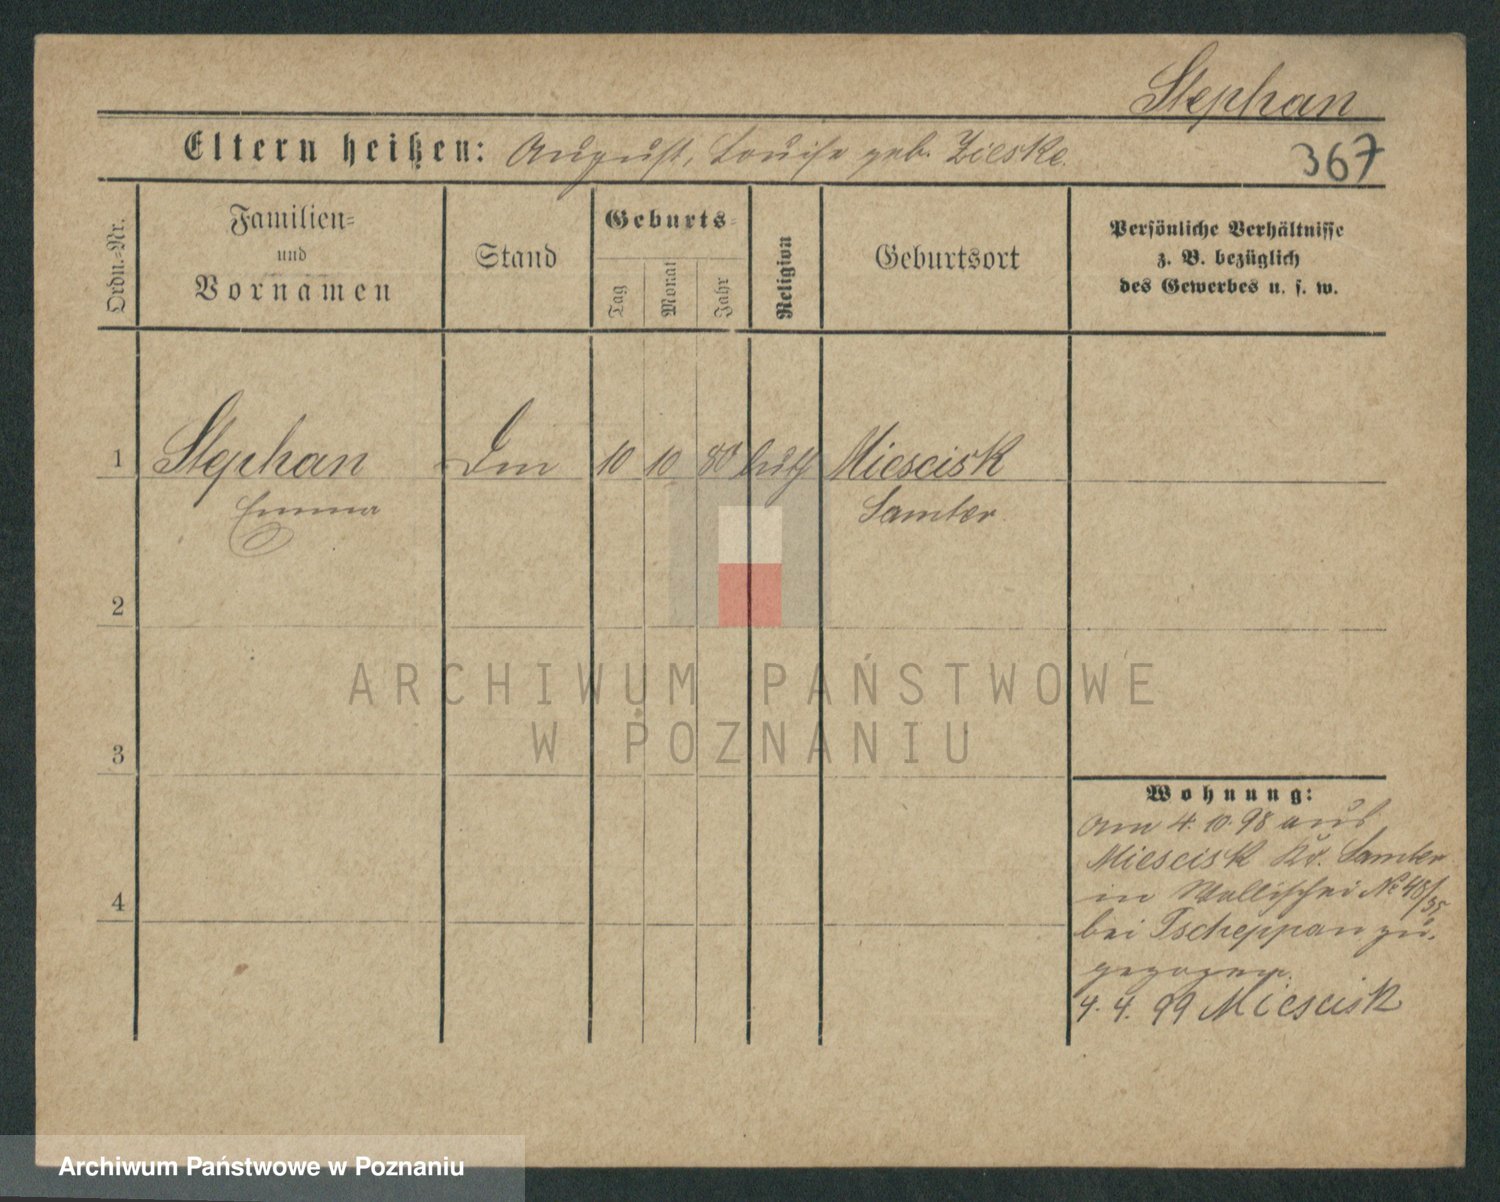 Stephan
Eltern heißen: August, Louise geb. Zieske.
367
Ordn.=Nr.
Familien=
und
Vornamen
Stand
Geburts=
Tag
Monat
Jahr
Religion
Geburtsort
Persönliche Verhältnisse
z. B. bezüglich
des Gewerbes u. s. w.
1 Stephan 10 10 80 luth Miescisk
Emma Samter
2
3
4
ARCHIWUM PAŃSTWOWE
W POZNANIU
Wohnung:
Am 4. 10. 98 aus
Miescisk Kr. Samter
in Wallischei No
bei Tscheppan zu-
gezogen.
4. 4. 99 Miescisk
Archiwum Państwowe w Poznaniu